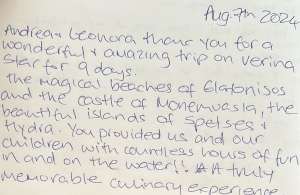 Aug. 7th 2024
Andrea + Leonora thank you for a
wonderful + amazing trip on Verina
Star for 9 days.
The magical beaches of Elafonisos
and the castle of Monemvasia, the
beautiful islands of Spetses +
Hydra. You provided us and our
children with countless hours of fun
in and on the water!! A truly
memorable culinary experience